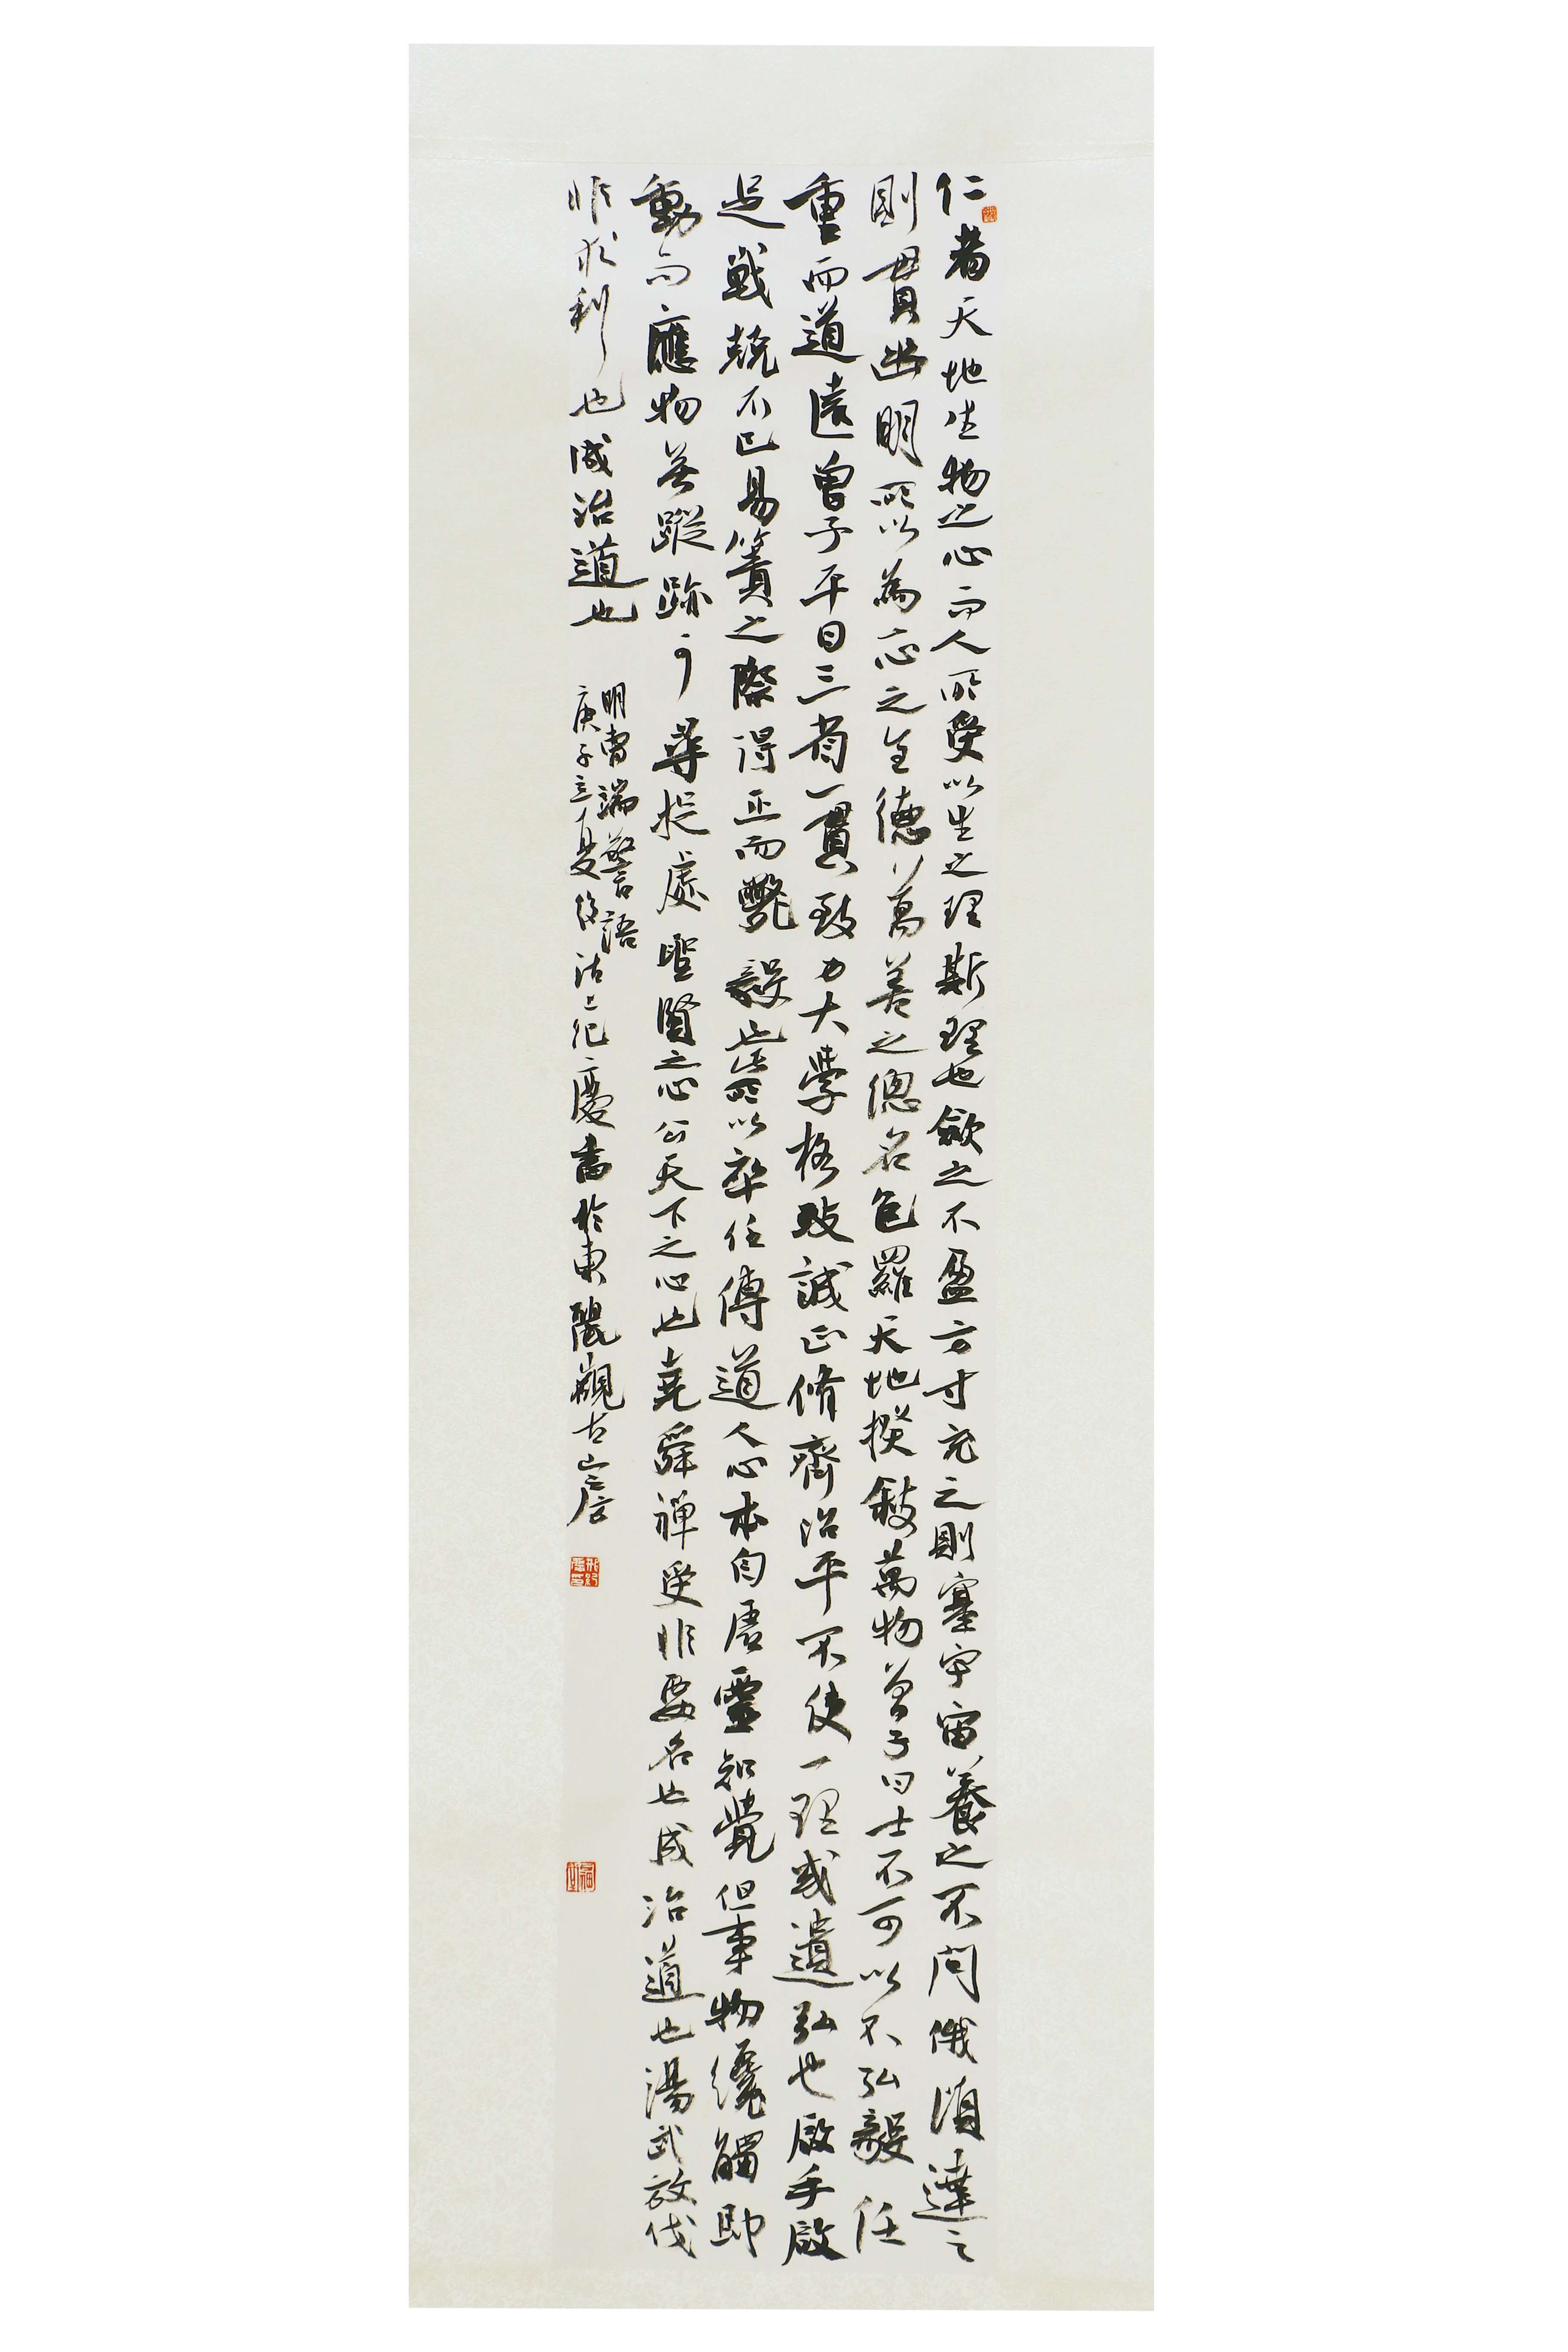 仁者天地生物之心而人所受以生之理斯理也斂之不盈方寸充之則塞宇宙養之不間俄頃達之
則貫幽明所以為心之全德萬善之總名包羅天地揆敘萬物曾子曰士不可以不弘毅任
重而道遠曾子平日三省一貫致力大學格致誠正脩齊治平不使一理或遺弘也啟手啟
足戰兢不已易簀之際得正而斃毅也此所以卒任傳道人心本自虛靈知覺但事物纔觸即
動而應物無蹤跡可尋捉處聖賢之心公天下之心也堯舜禪受非要名也成治道也湯武放伐
非求利也成治道也
明曹端警語
庚子立夏後沽上范慶書於東麗觀古山房